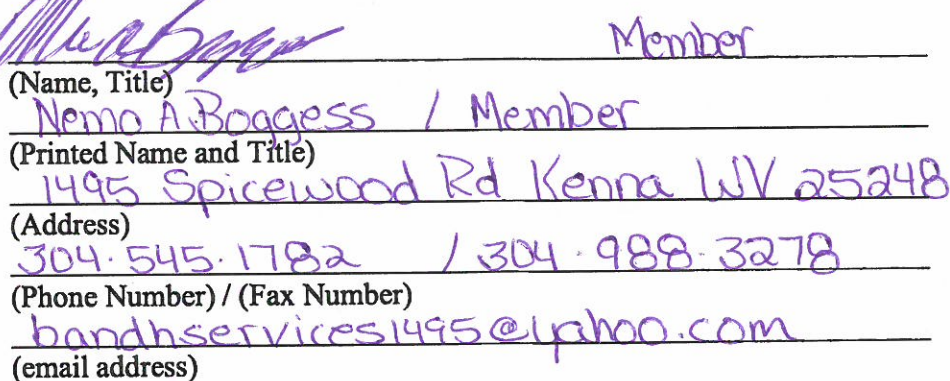 Member
(Name, Title)
Nemo A. Boggess / Member
(Printed Name and Title)
1495 Spicewood Rd Kenna WV 25248
(Address)
304.545.1782 / 304.988.3278
(Phone Number) / (Fax Number)
bandhservices1495@yahoo.com
(email address)